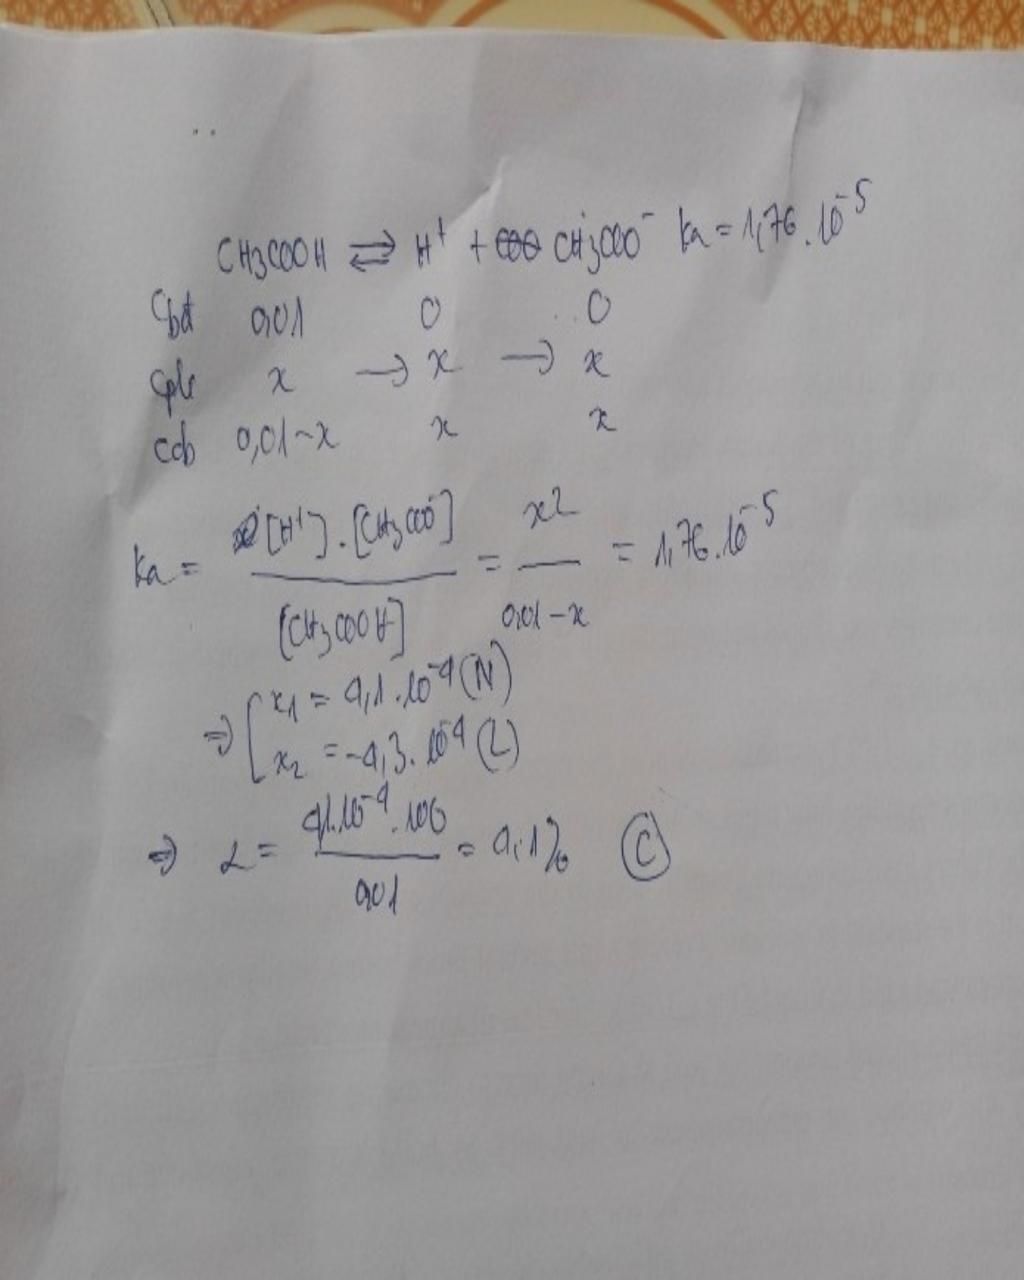 CH3COOH ⇌ H⁺ + CH3COO⁻ Ka = 1,76.10⁻⁵
Cbđ 0,01 0 0
Cpli x → x → x
Ccb 0,01-x x x
Ka = [H⁺].[CH3COO⁻] / [CH3COOH] = x2 / 0,01-x = 1,76.10⁻⁵
⇒ [ x₁ = 4,1.10⁻⁴ (N)
x₂ = -4,3.10⁻⁴ (L)
⇒ α = 4,1.10⁻⁴.100 / 0,01 = 4,1% Ⓒ